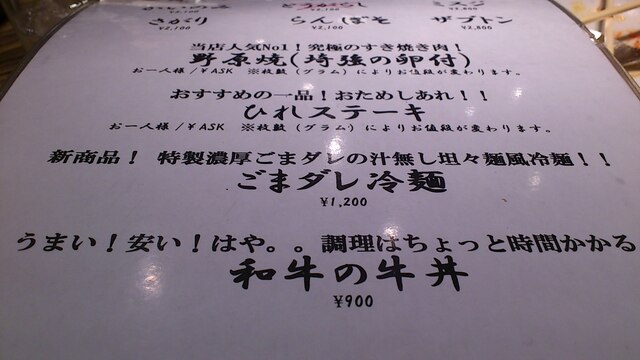 さがり らんぼそ ザブトン
¥2,100 ¥2,100 ¥2,800
当店人気No1！究極のすき焼き肉！
野原焼(琦強の卵付)
お一人様/¥ASK ※枚数(グラム)によりお値段が変わります。
おすすめの一品！おためしあれ！！
ひれステーキ
お一人様/¥ASK ※枚数(グラム)によりお値段が変わります。
新商品！ 特製濃厚ごまダレの汁無し坦々麺風冷麺！！
ごまダレ冷麺
¥1,200
うまい！安い！はや。。調理はちょっと時間かかる
和牛の牛丼
¥900